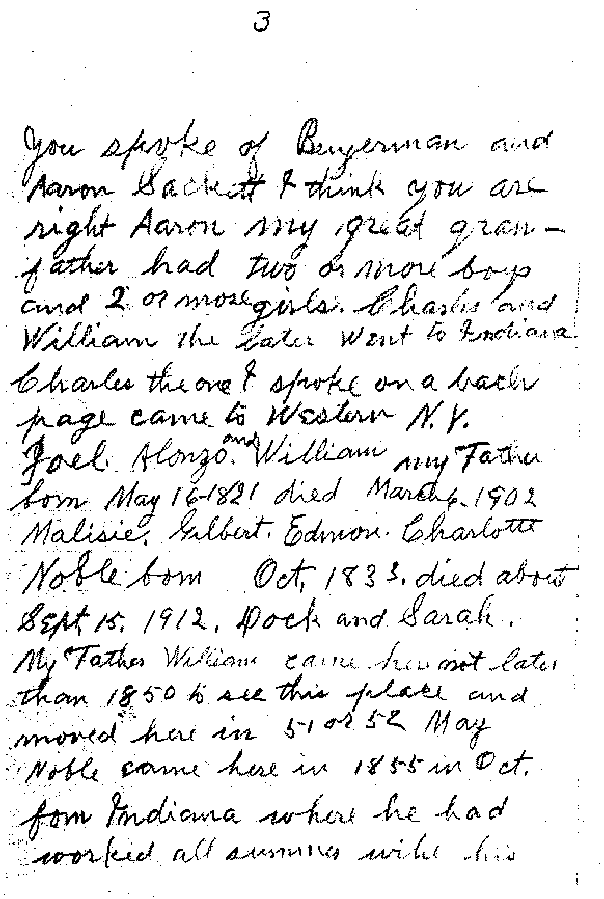 3
You spoke of Benjerman and
Aaron Sackett I think you are
right Aaron my great gran-
father had two or more boys
and 2 or more girls. Charles and
William the later went to Indiana
Charles the one I spoke on a back
page came to Western N.Y.
Joel Alonzo. and William my Father
born May 16-1821 died March 6. 1902
Malisie. Gilbert. Edmon. Charlott
Noble born Oct, 1833. died about
Sept, 15. 1912. Dock and Sarah.
My Father William came here not later
than 1850 to see this place and
moved here in 51 or 52 May
Noble came here in 1855 in Oct.
fom Indiana where he had
worked all summer with his